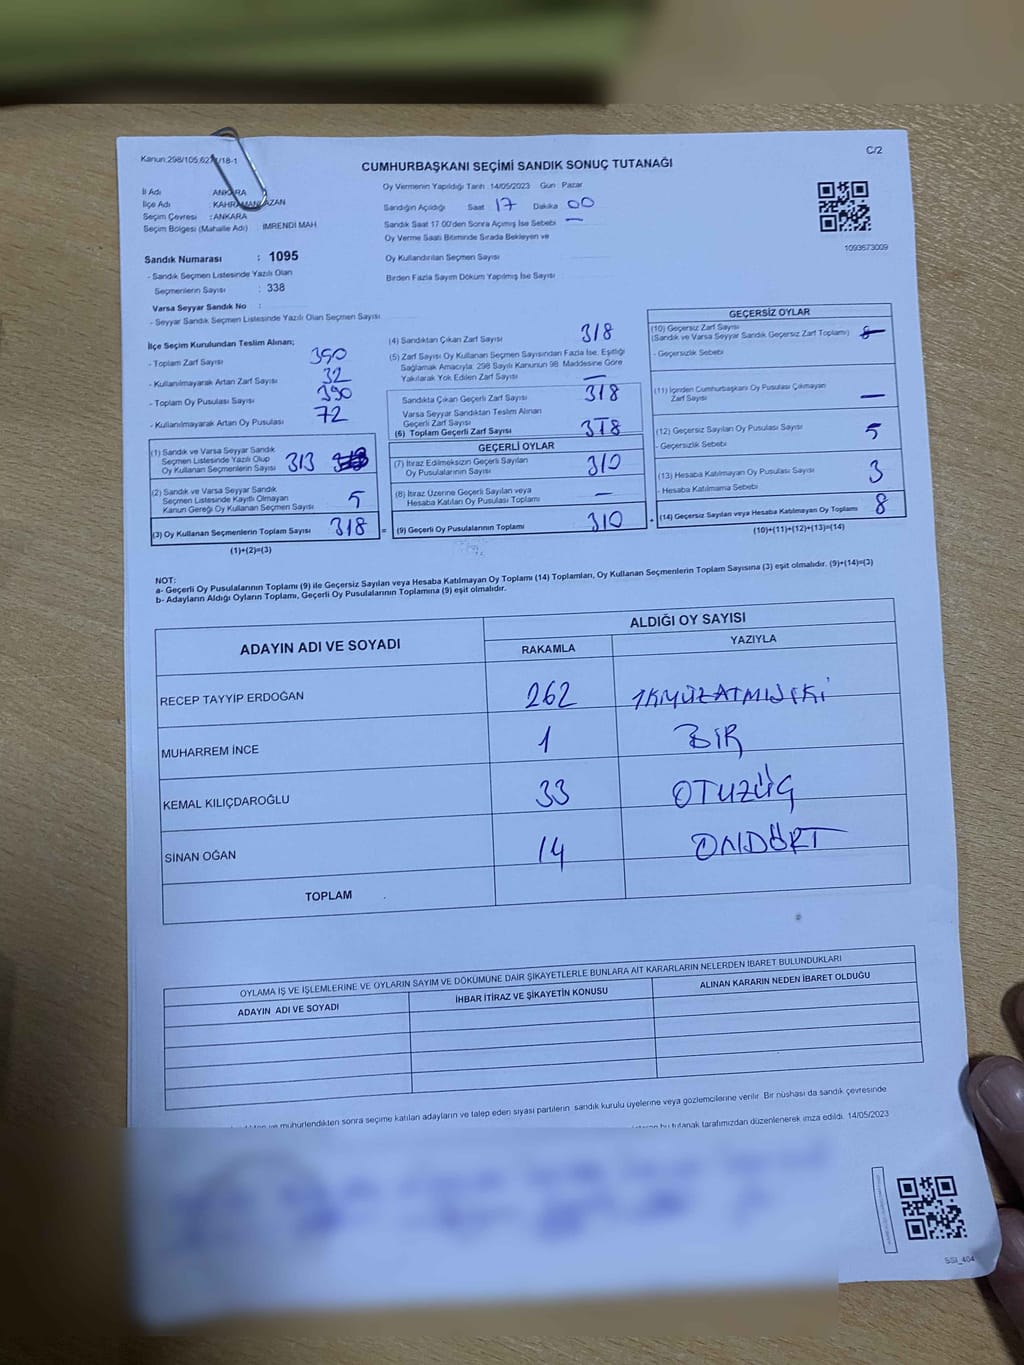 Kanun:298/105,627/18-1
C/2
CUMHURBAŞKANI SEÇİMİ SANDIK SONUÇ TUTANAĞI
İl Adı ANKARA
İlçe Adı KAHRAMANKAZAN
Seçim Çevresi : ANKARA
Seçim Bölgesi (Mahalle Adı) İMRENDİ MAH
Oy Vermenin Yapıldığı Tarih 14/05/2023 Gün Pazar
Sandığın Açıldığı Saat 17 Dakika 00
Sandık Saat 17.00'den Sonra Açılmış İse Sebebi —
Oy Verme Saati Bitiminde Sırada Bekleyen ve
Oy Kullandırılan Seçmen Sayısı
Birden Fazla Sayım Döküm Yapılmış İse Sayısı
1093673009
Sandık Numarası : 1095
- Sandık Seçmen Listesinde Yazılı Olan
Seçmenlerin Sayısı : 338
Varsa Seyyar Sandık No :
- Seyyar Sandık Seçmen Listesinde Yazılı Olan Seçmen Sayısı
İlçe Seçim Kurulundan Teslim Alınan;
- Toplam Zarf Sayısı 350
- Kullanılmayarak Artan Zarf Sayısı 32
- Toplam Oy Pusulası Sayısı 390
- Kullanılmayarak Artan Oy Pusulası 72
(1) Sandık ve Varsa Seyyar Sandık
Seçmen Listesinde Yazılı Olup
Oy Kullanan Seçmenlerin Sayısı 313
(2) Sandık ve Varsa Seyyar Sandık
Seçmen Listesinde Kayıtlı Olmayan
Kanun Gereği Oy Kullanan Seçmen Sayısı 5
(3) Oy Kullanan Seçmenlerin Toplam Sayısı 318 =
(1)+(2)=(3)
(4) Sandıktan Çıkan Zarf Sayısı 318
(5) Zarf Sayısı Oy Kullanan Seçmen Sayısından Fazla İse, Eşitliği
Sağlamak Amacıyla; 298 Sayılı Kanunun 98. Maddesine Göre
Yakılarak Yok Edilen Zarf Sayısı —
Sandıkta Çıkan Geçerli Zarf Sayısı 318
Varsa Seyyar Sandıktan Teslim Alınan
Geçerli Zarf Sayısı —
(6) Toplam Geçerli Zarf Sayısı 318
GEÇERLİ OYLAR
(7) İtiraz Edilmeksizin Geçerli Sayılan
Oy Pusulalarının Sayısı 310
(8) İtiraz Üzerine Geçerli Sayılan veya
Hesaba Katılan Oy Pusulası Toplamı —
(9) Geçerli Oy Pusulalarının Toplamı 310 +
GEÇERSİZ OYLAR
(10) Geçersiz Zarf Sayısı
(Sandık ve Varsa Seyyar Sandık Geçersiz Zarf Toplamı)
- Geçersizlik Sebebi
(11) İçinden Cumhurbaşkanı Oy Pusulası Çıkmayan
Zarf Sayısı —
(12) Geçersiz Sayılan Oy Pusulası Sayısı 5
- Geçersizlik Sebebi
(13) Hesaba Katılmayan Oy Pusulası Sayısı 3
- Hesaba Katılmama Sebebi
(14) Geçersiz Sayılan veya Hesaba Katılmayan Oy Toplamı 8
(10)+(11)+(12)+(13)=(14)
NOT:
a- Geçerli Oy Pusulalarının Toplamı (9) ile Geçersiz Sayılan veya Hesaba Katılmayan Oy Toplamı (14) Toplamları, Oy Kullanan Seçmenlerin Toplam Sayısına (3) eşit olmalıdır. (9)+(14)=(3)
b- Adayların Aldığı Oyların Toplamı, Geçerli Oy Pusulalarının Toplamına (9) eşit olmalıdır.
ADAYIN ADI VE SOYADI ALDIĞI OY SAYISI
RAKAMLA YAZIYLA
RECEP TAYYİP ERDOĞAN 262 İKİYÜZATMIŞİKİ
MUHARREM İNCE 1 BİR
KEMAL KILIÇDAROĞLU 33 OTUZÜÇ
SİNAN OĞAN 14 ONDÖRT
TOPLAM
OYLAMA İŞ VE İŞLEMLERİNE VE OYLARIN SAYIM VE DÖKÜMÜNE DAİR ŞİKAYETLERLE BUNLARA AİT KARARLARIN NELERDEN İBARET BULUNDUKLARI
ADAYIN ADI VE SOYADI İHBAR İTİRAZ VE ŞİKAYETİN KONUSU ALINAN KARARIN NEDEN İBARET OLDUĞU
ve mühürlendikten sonra seçime katılan adayların ve talep eden siyasi partilerin sandık kurulu üyelerine veya gözlemcilerine verilir. Bir nüshası da sandık çevresinde
bu tutanak tarafımızdan düzenlenerek imza edildi. 14/05/2023
SSI_404